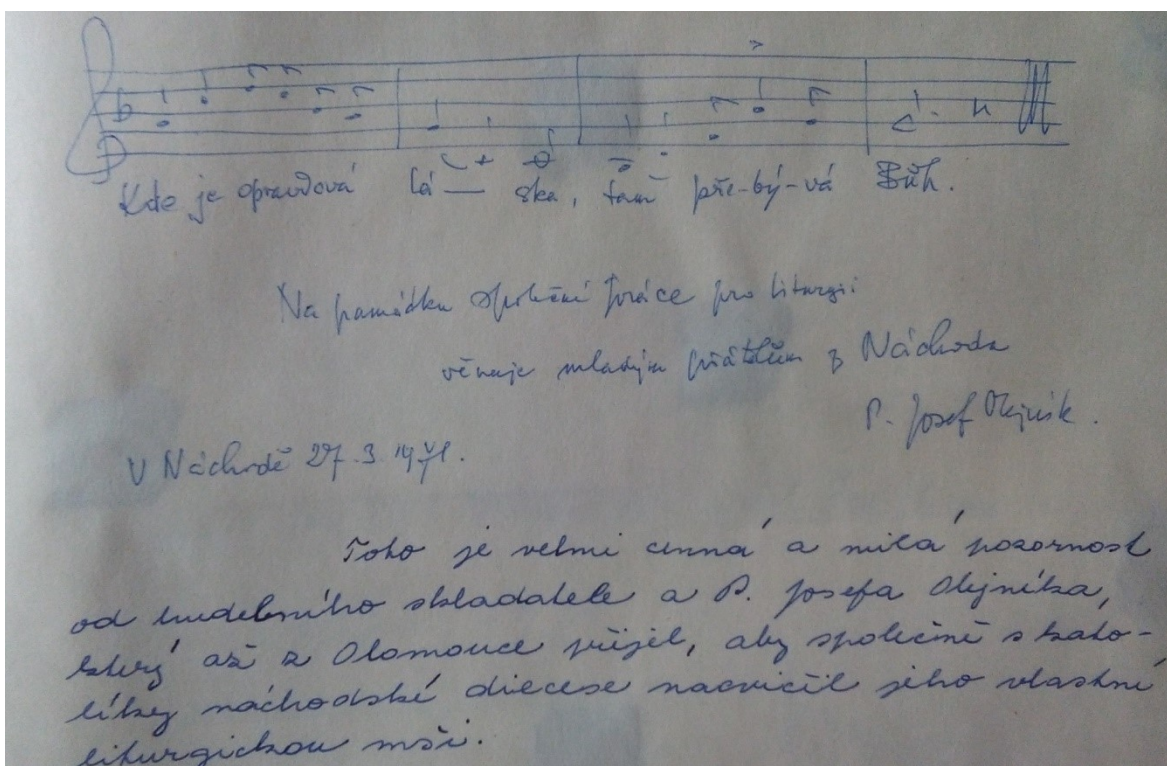 Kde je opravdová lá — ska, tam pře-bý-vá Bůh.
Na památku společné práce pro liturgii
věnuje mladým přátelům z Náchoda
P. Josef Olejník.
V Náchodě 27.3 1971.
Toho je velmi cenná a milá pozornost
od hudebního skladatele a P. Josefa Olejníka,
který až z Olomouce přijel, aby společně s kato-
líky náchodské diecese nacvičil jeho vlastní
liturgickou mši.